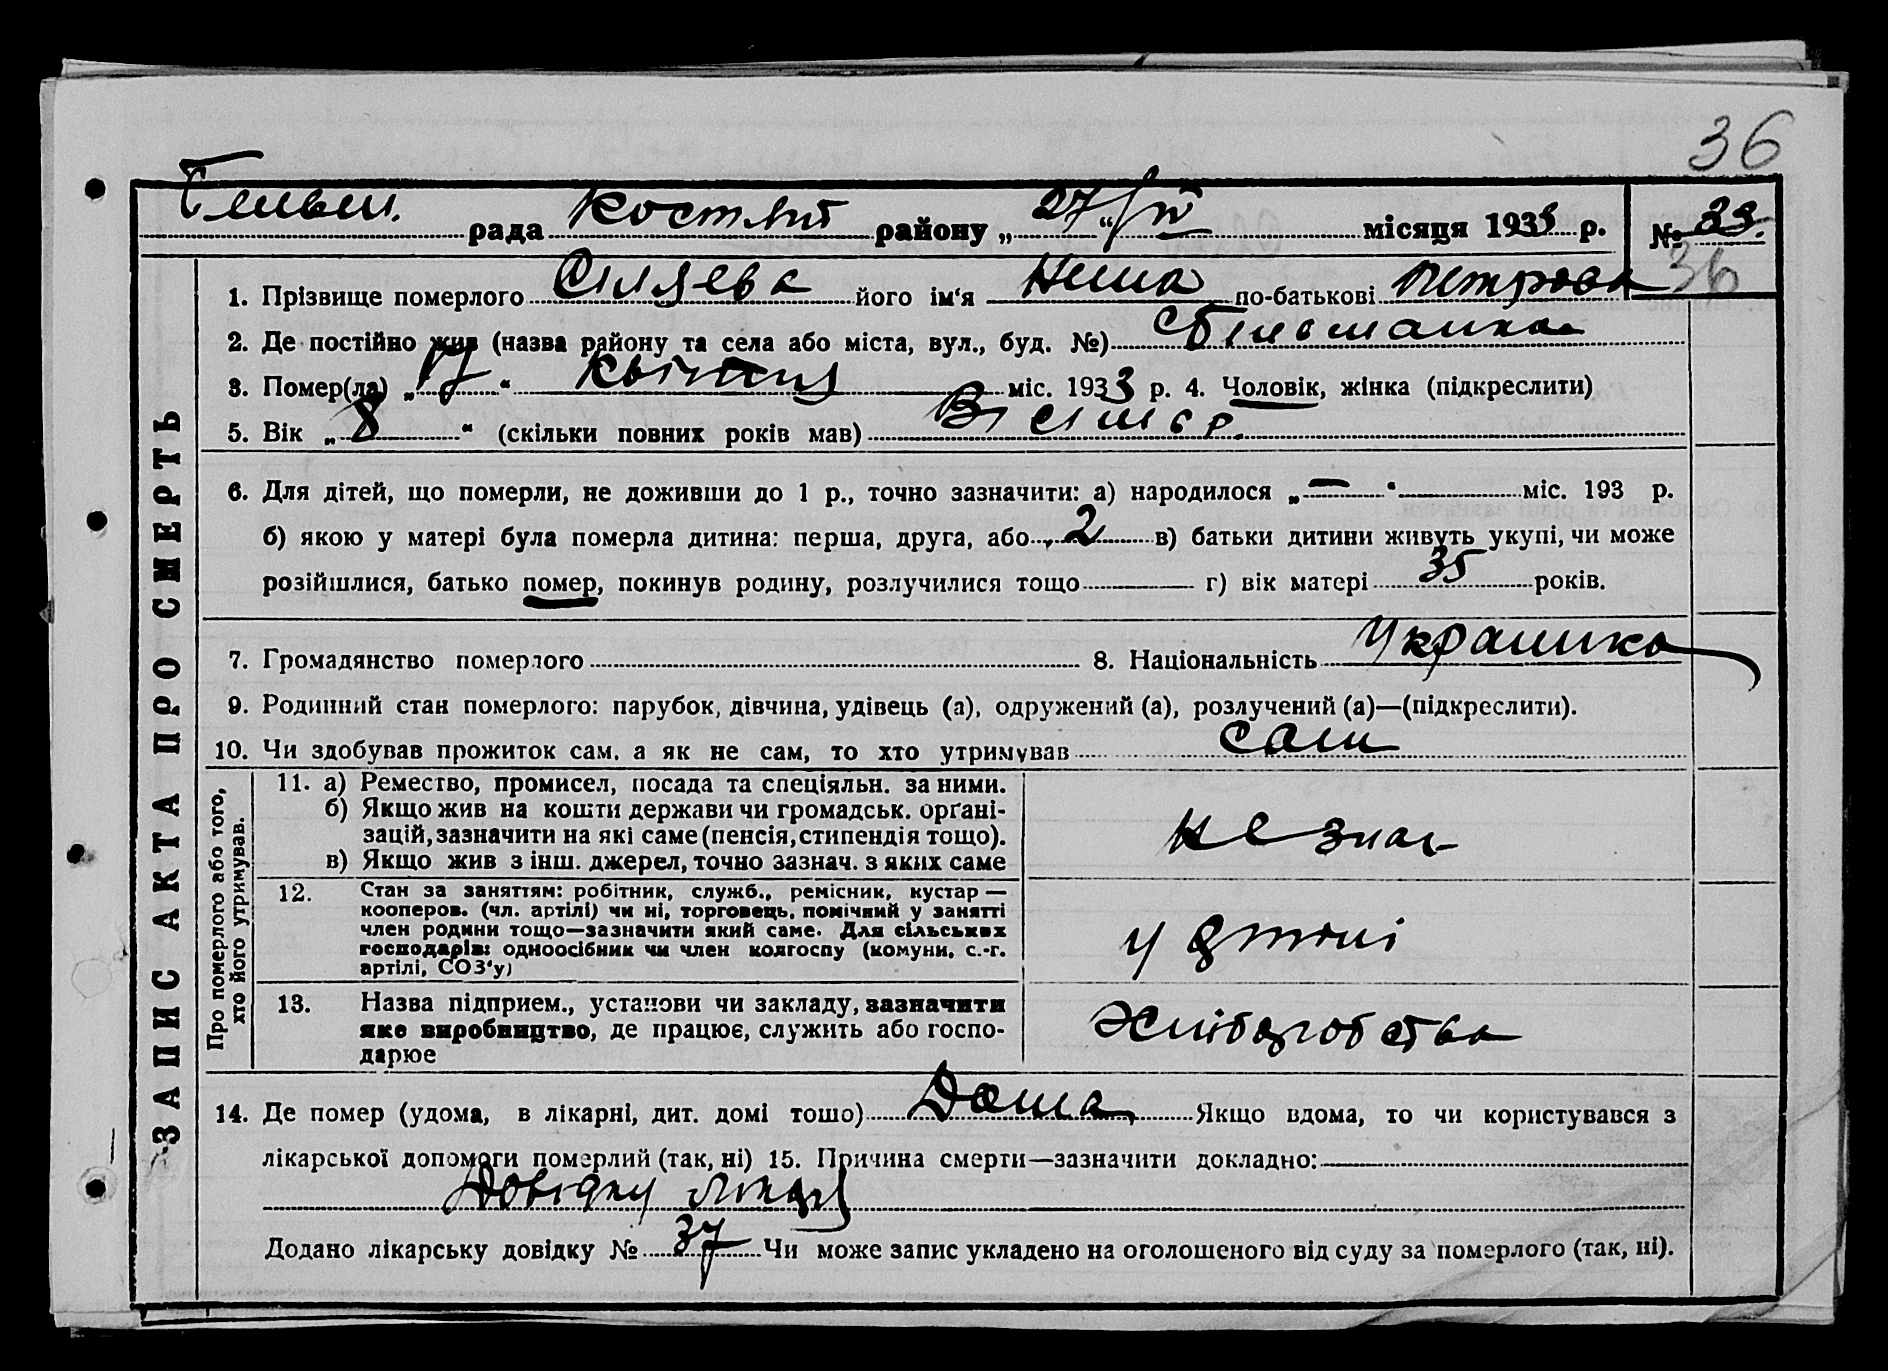 36
рада Костянт району „27“ IV місяця 1933 р. № 23.
36
1. Прізвище померлого його ім'я по-батькові Петрова
2. Де постійно жив (назва району та села або міста, вул., буд. №)
3. Помер(ла) „17“ квітня міс. 1933 р. 4. Чоловік, жінка (підкреслити)
5. Вік „8“ (скільки повних років мав)
6. Для дітей, що померли, не доживши до 1 р., точно зазначити: а) народилося „—“ міс. 193 р.
б) якою у матері була померла дитина: перша, друга, або 2 в) батьки дитини живуть укупі, чи може
розійшлися, батько помер, покинув родину, розлучилися тощо г) вік матері 35 років.
7. Громадянство померлого 8. Національність Украинка
9. Родинний стан померлого: парубок, дівчина, удівець (а), одружений (а), розлучений (а)—(підкреслити).
10. Чи здобував прожиток сам, а як не сам, то хто утримував сам
ЗАПИС АКТА ПРО СМЕРТЬ
Про померлого або того, хто його утримував.
11. а) Ремество, промисел, посада та спеціяльн. за ними.
б) Якщо жив на кошти держави чи громадськ. орґані-
зацій, зазначити на які саме (пенсія, стипендія тощо).
в) Якщо жив з інш. джерел, точно зазнач. з яких саме
не знає
12. Стан за заняттям: робітник, служб., ремісник, кустар —
кооперов. (чл. артілі) чи ні, торговець, помічний у занятті
член родини тощо—зазначити який саме. Для сільських
господарів: одноосібник чи член колгоспу (комуни, с.-г.
артілі, СОЗ'у)
13. Назва підприєм., установи чи закладу, зазначити
яке виробництво, де працює, служить або госпо-
дарює
14. Де помер (удома, в лікарні, дит. домі тощо) Дома Якщо вдома, то чи користувався з
лікарської допомоги померлий (так, ні) 15. Причина смерти—зазначити докладно:
Додано лікарську довідку № 37 Чи може запис укладено на оголошеного від суду за померлого (так, ні).